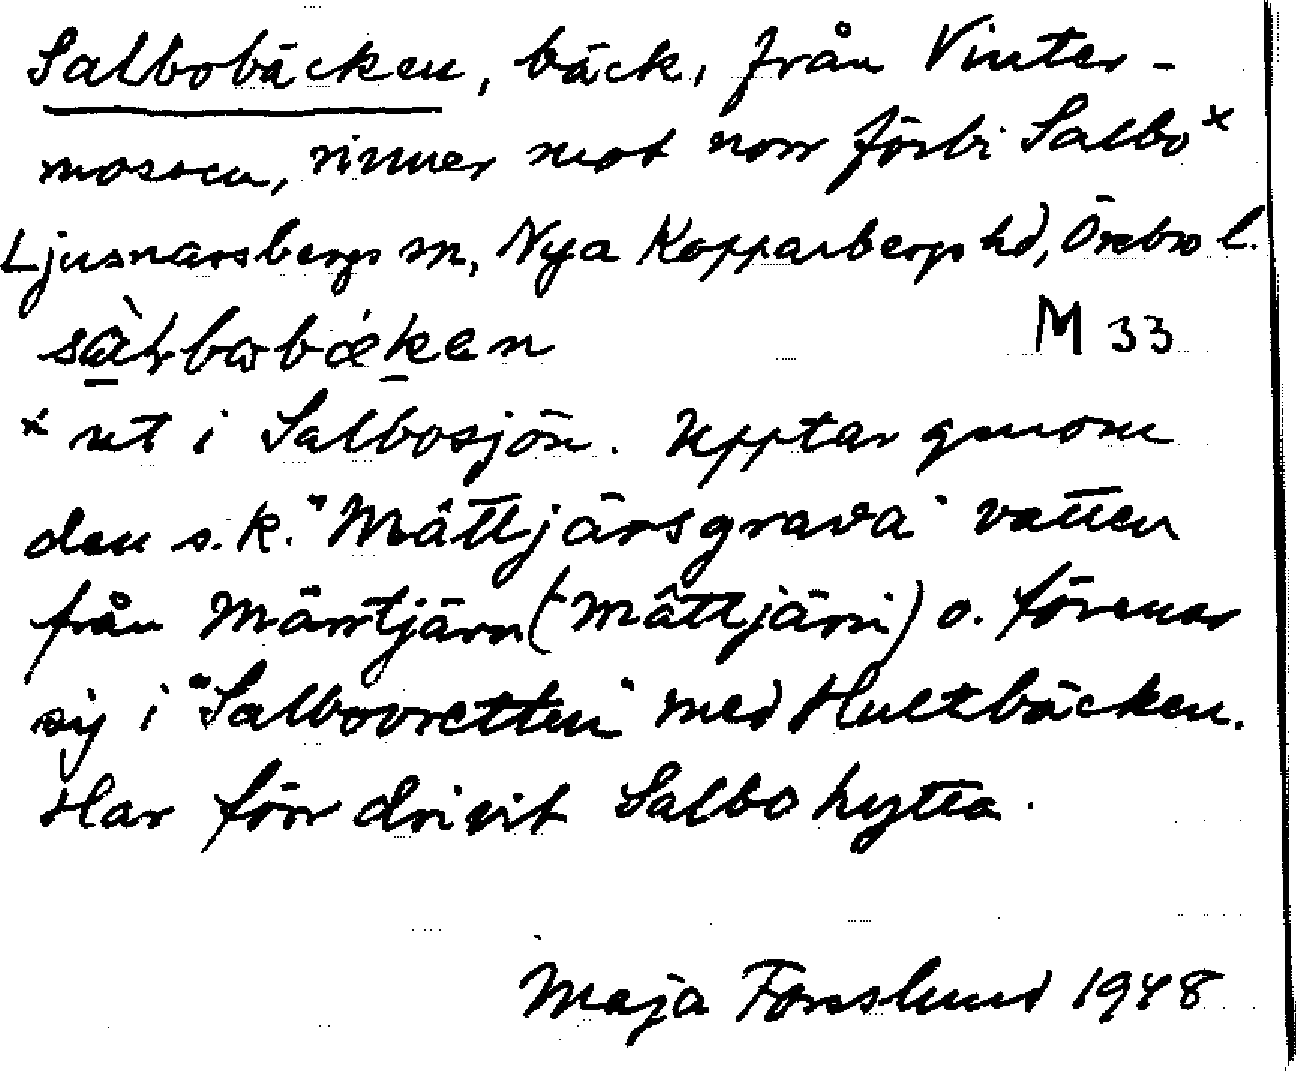 Salbobäcken, bäck, från Vinter-
mossen, rinner mot norr förbi Salbo x
Ljusnarsbergs sn, Nya Kopparbergs hd, Örebro l.
M 33
x ut i Salbosjön. Upptar genom
den s.k. "Måttjärsgrava" vatten
från Mårrtjärn (Måttjärn) o. förenar
sig i "Salbovretten" med Hultbäcken.
Har förr drivit Salbo hytta.
Maja Forslund 1948